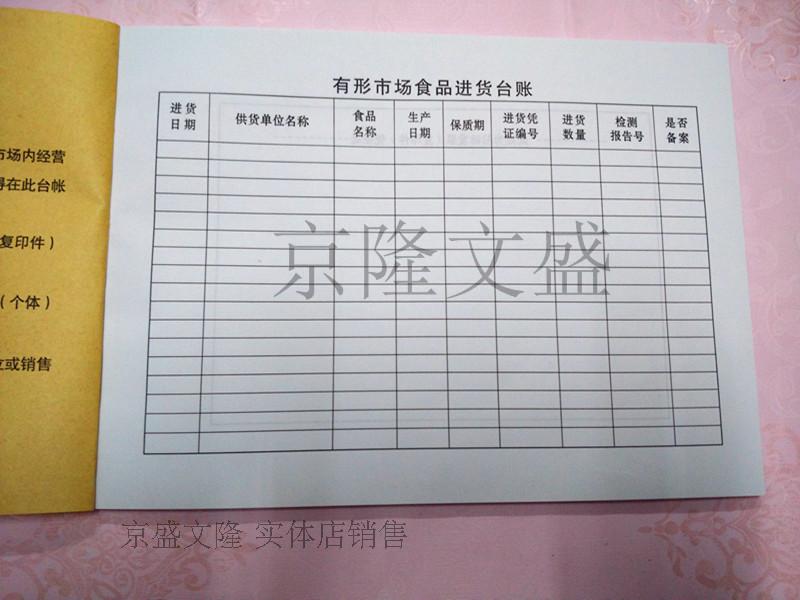 有形市场食品进货台账
进货日期 供货单位名称 食品名称 生产日期 保质期 进货凭证编号 进货数量 检测报告号 是否备案
市场内经营
得在此台帐
复印件）
（个体）
或销售
京隆文盛
京盛文隆 实体店销售